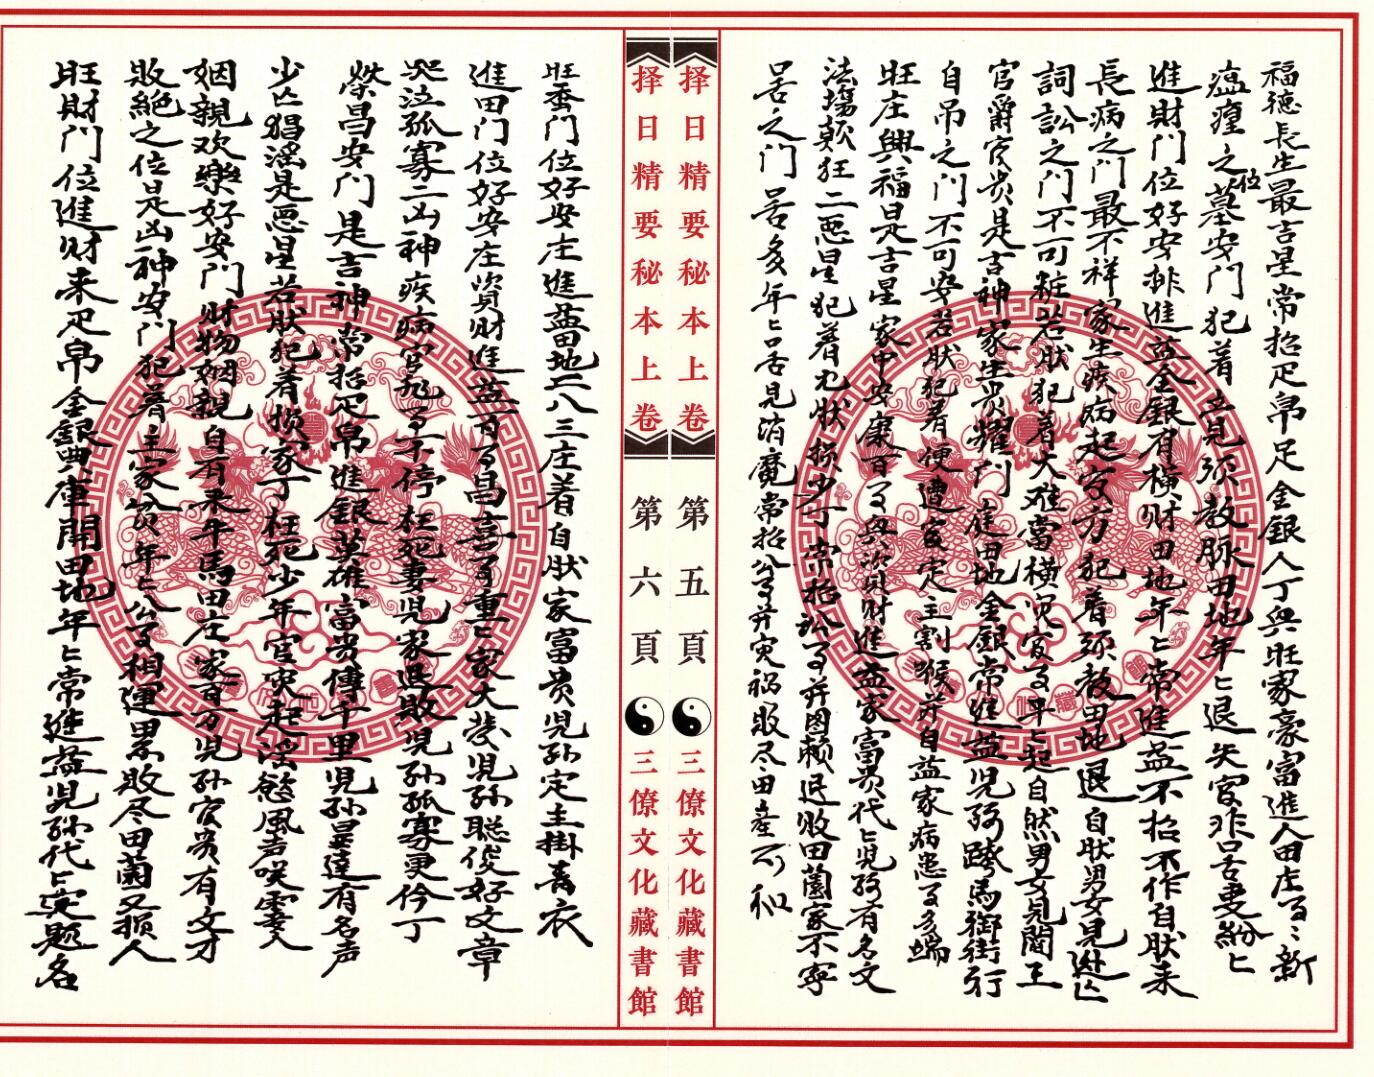 福德長生最吉星常招疋帛足金銀人丁興旺家豪富進人田庄百〻新
瘟瘟之位墓安門犯着立見須教脉田地年〻退失官非口舌更紛〻
進財門位好安排進益金銀有横財田地年〻常進益不招不作自狀来
長病之門最不祥家生疾病起官方犯着须教田地退自狀男女見逃亡
詞訟之門不可粧若狀犯着大难當横灾官事年〻起自然男女見閻王
官爵官贵是吉神家生贵耀门庭田地金銀常進益兒孫跨馬御街行
自吊之门不可安若狀犯着便遭官定主割喉并自益家病患事多端
旺庄興福是吉星家中安康百事興次贝財進益家富贵代〻兒孫有名文
法場欺狂二恶星犯着尤狀损少丁常招訟事并图赖退败田薗家不寧
呂舌之门呂多年〻口舌見消魔常招公事并灾祸败尽田産不可和
择日精要秘本上卷
第五頁
三僚文化藏書館
择日精要秘本上卷
第六頁
三僚文化藏書館
旺蚕门位好安庄進益田地二八三庄着自狀家富贵兒孙定主掛青衣
進田门位好安庄資財進益百事昌喜事重〻家大發兒孙聪俊好文章
哭泣孤寡二凶神疾病官邪事不停枉死妻兒家退败兒孙孤寡更伶丁
荣昌安门是吉神常招疋帛進銀英雄富贵傳千里兒孙显達有名声
少亡猖淫是恶星若狀犯着损家丁枉死少年官灾起淫慾風声咲雲人
姻親欢樂好安门财物姻親自有来牛馬田庄家百万兒孙官贵有文才
敗絶之位是凶神安门犯着主家贫年〻公事相連累败尽田薗又损人
旺财门位進财来疋帛金銀典庫開田地年〻常進益兒孙代〻定题名